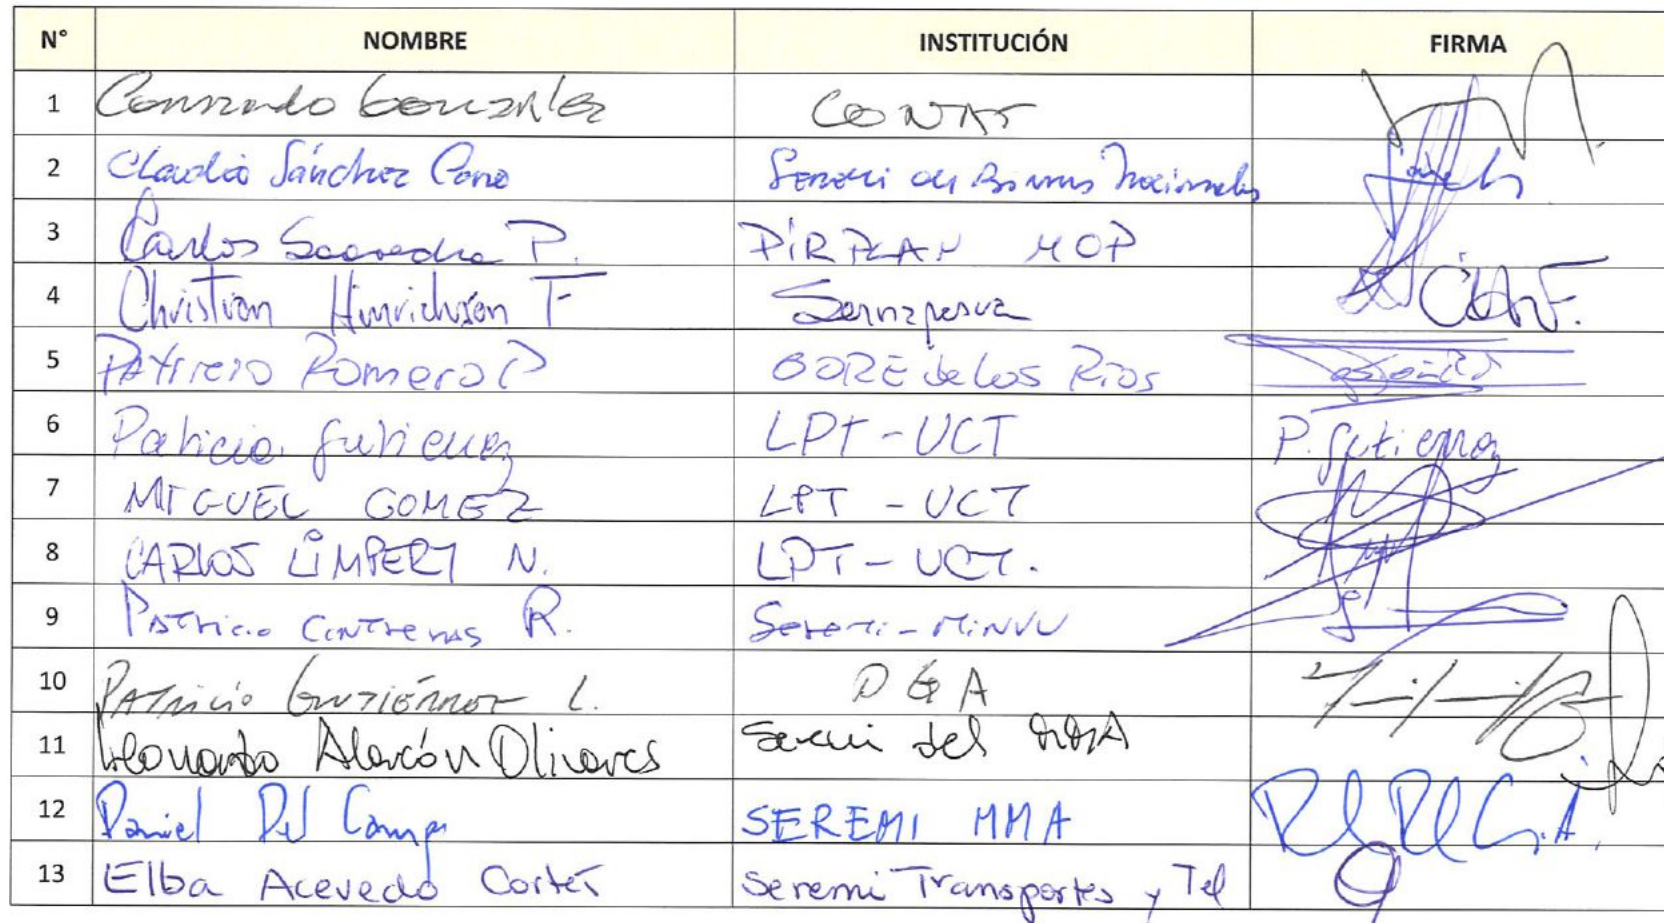 N° NOMBRE INSTITUCIÓN FIRMA
1 Conrado González CONAF
2 Claudio Sánchez Seremi de Bienes Nacionales
3 Carlos Saavedra P. DIRPLAN MOP
4 Christian Hinrichsen F Sernapesca
5 PAtricio Romero P GORE de los Rios
6 Patricia Gutierrez LPT-UCT P. Gutierrez
7 MIGUEL GOMEZ LPT - UCT
8 CARLOS LIMPERT N. LPT - UCT.
9 PATricio CONTreras R. Seremi - MINVU
10 PATRICIO GUTIÉRREZ L. DGA
11 Leonardo Alarcón Olivares Seremi del MMA
12 Daniel Del Campo SEREMI MMA
13 Elba Acevedo Cortés Seremi Transportes y Tel